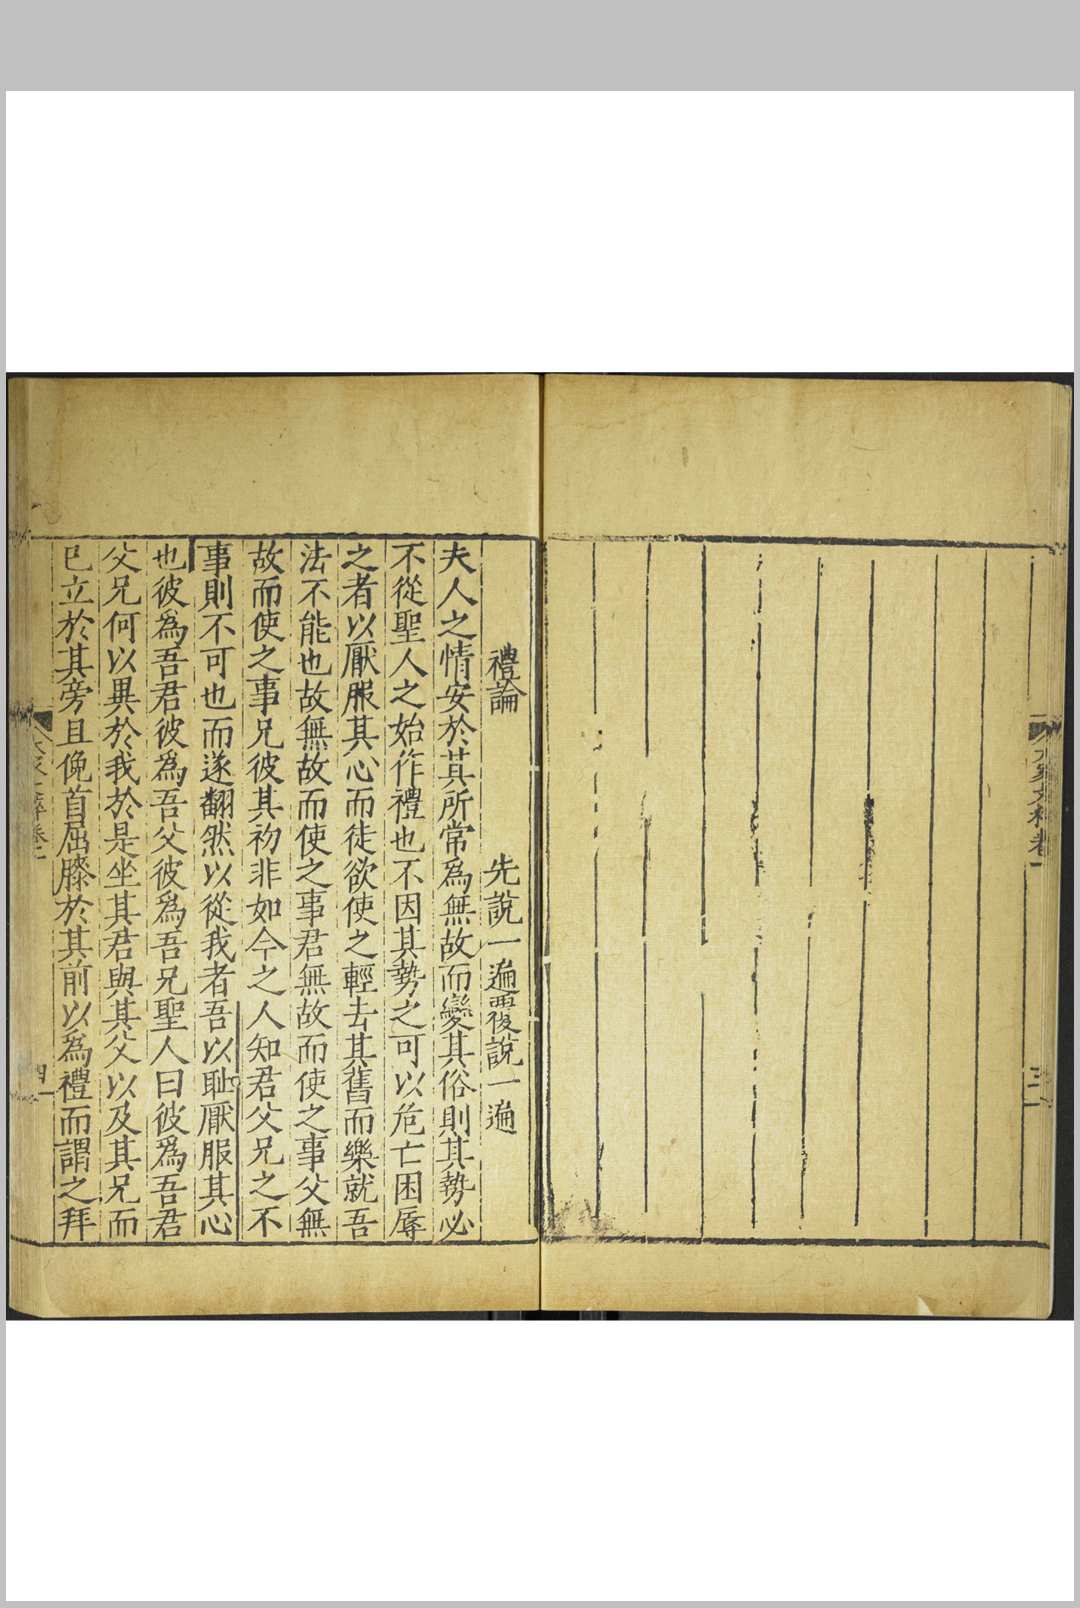 三
禮論 先說一遍覆後說一遍
夫人之情安於其所常爲無故而變其俗則其勢必
不從聖人之始作禮也不因其勢之可以危亡困辱
之者以厭服其心而徒欲使之輕去其舊而樂就吾
法不能也故無故而使之事君無故而使之事父無
故而使之事兄彼其初非如今之人知君父兄之不
事則不可也而遂翻然以從我者吾以耻厭服其心
也彼爲吾君彼爲吾父彼爲吾兄聖人曰彼爲吾君
父兄何以異於我於是坐其君與其父以及其兄而
已立於其旁且俛首屈膝於其前以爲禮而謂之拜
四